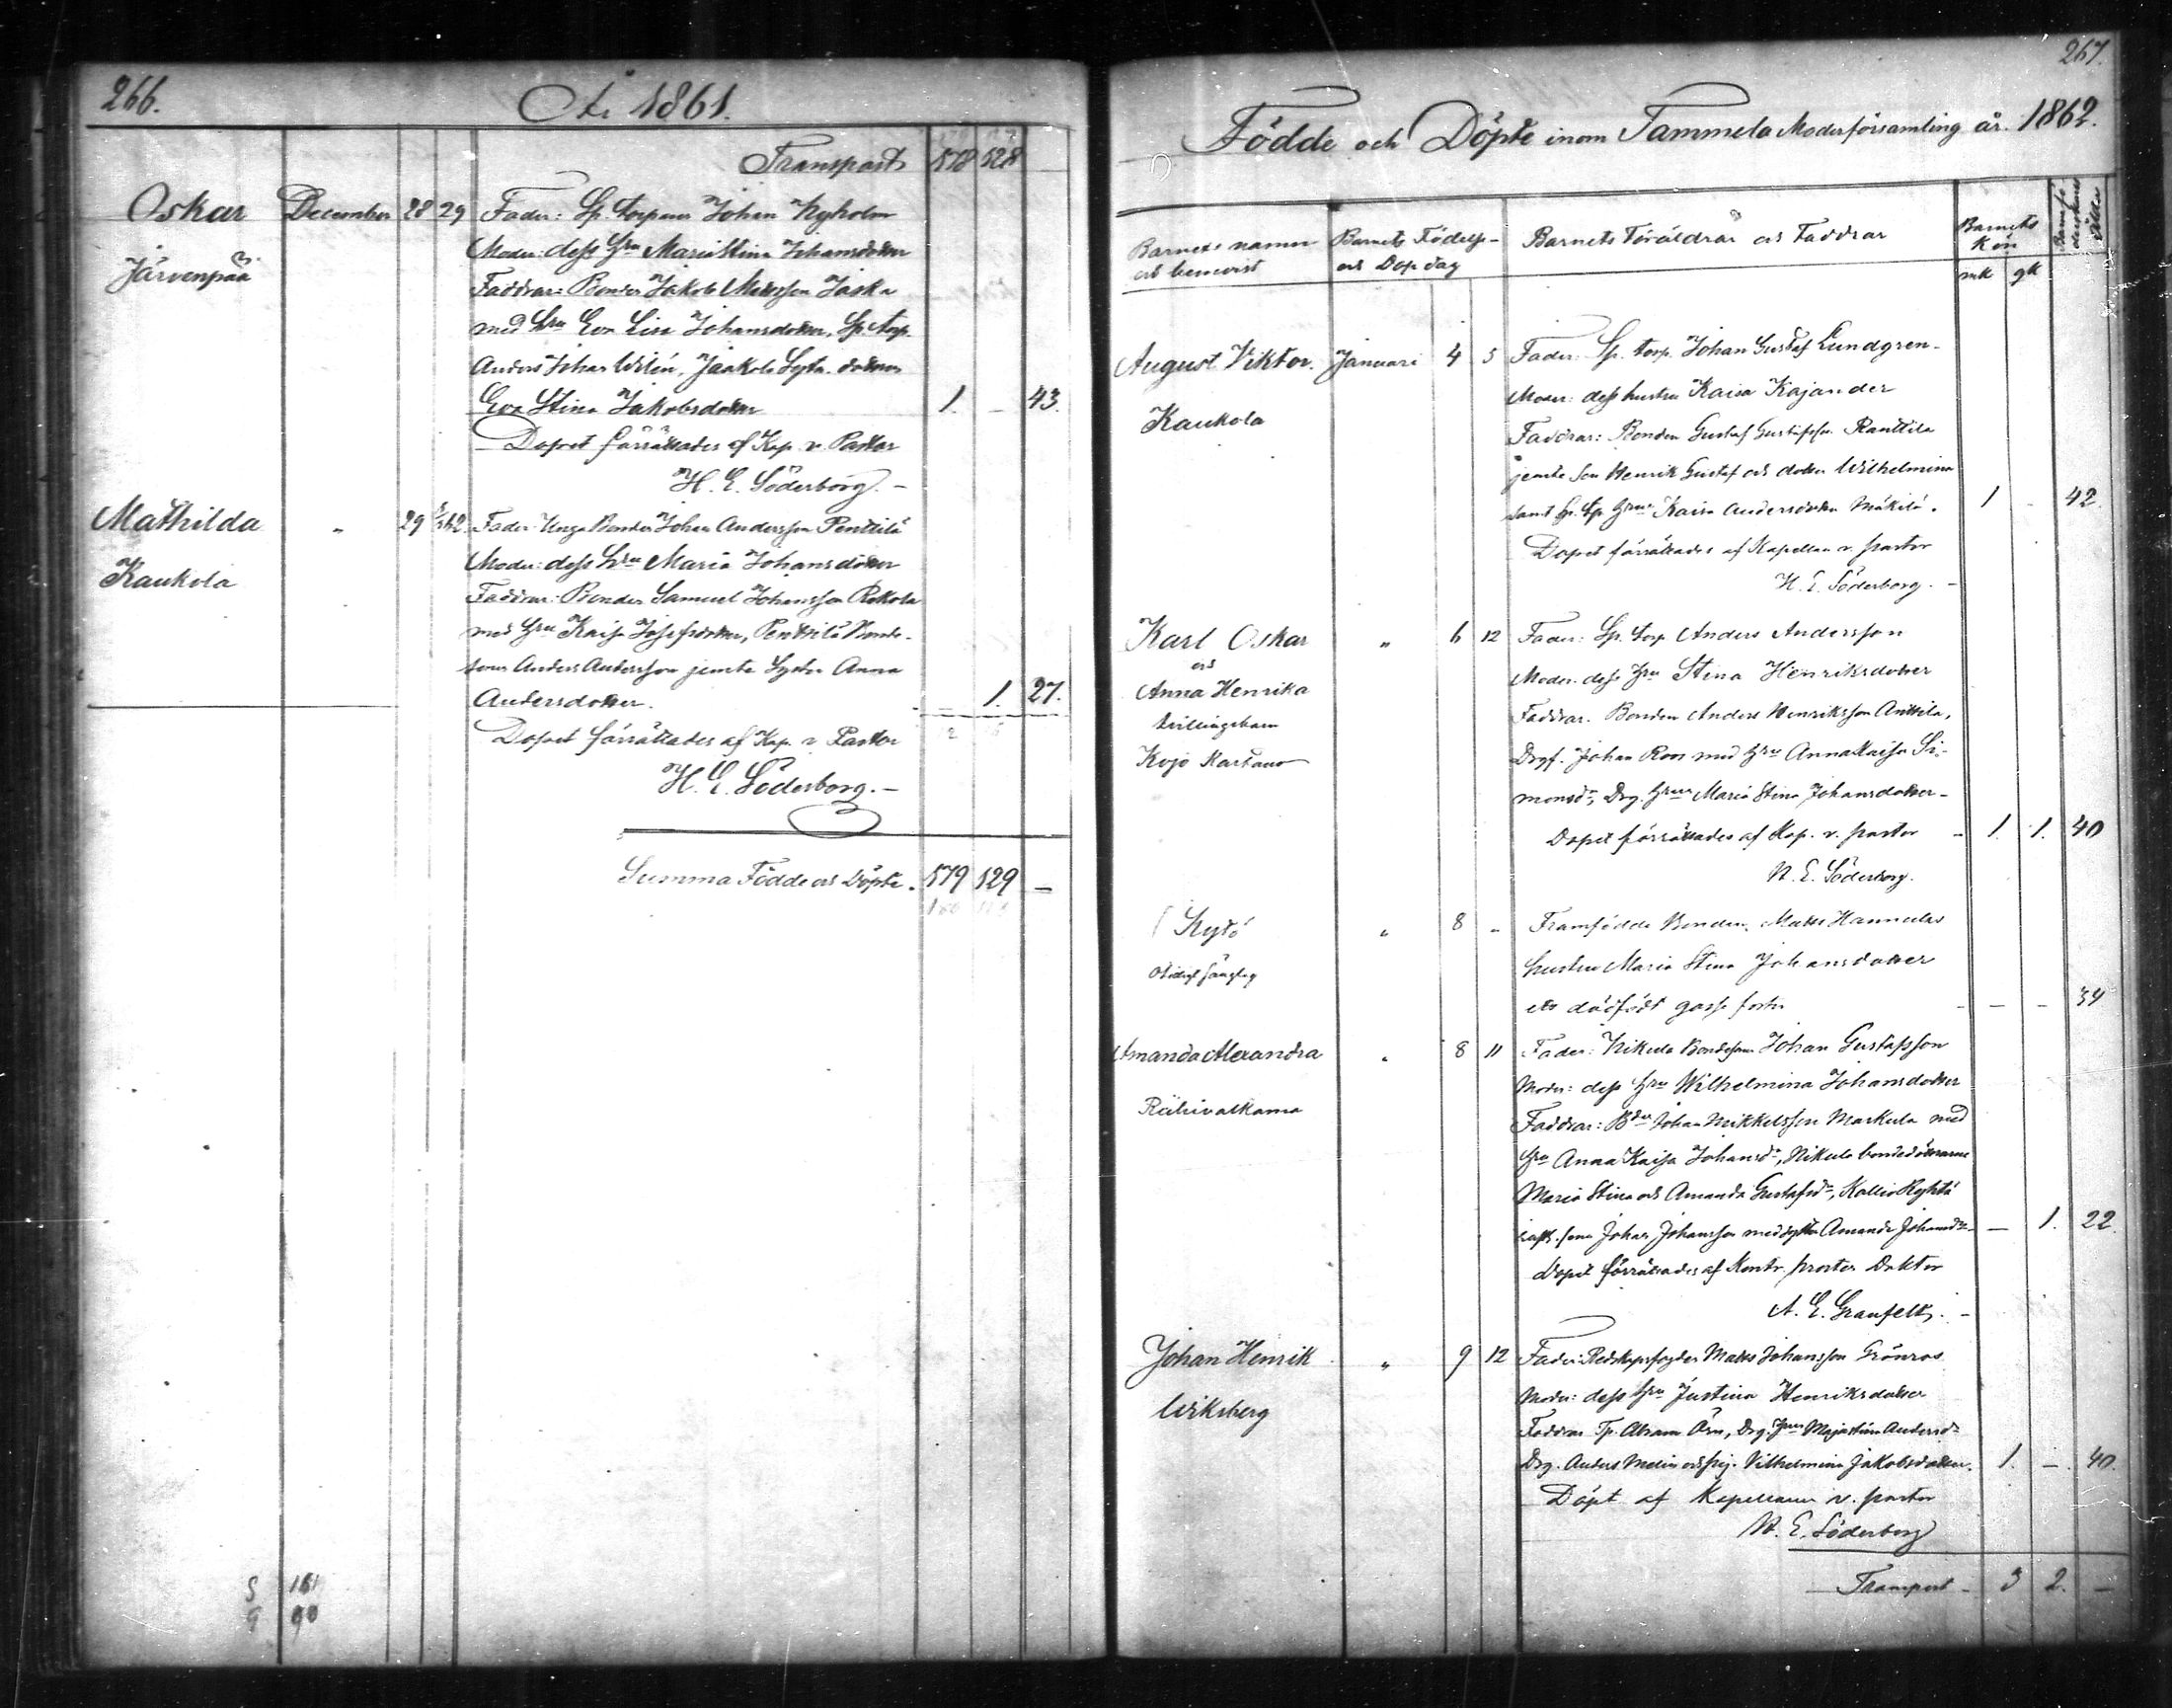 266.
År 1861.
Transport 178 128
Oskar December 28 29 Fader: Sp. torparen Johan Nyholm
Moder: dess Hru Maria Stina Johansdotter
Järvenpää
Faddrar: Bonden Jakob Mattsson Jaska
med hru Eva Lisa Johansdotter, Sp. torp.
Anders Johan Wilén, Jaakola dotter
Eva Stina Jakobsdotter 1. – 43.
Dopet förrättades af Kap. v. Pastor
H. E. Söderborg. –
Mathilda " 29 Fader Unga Bonden Johan Andersson Penttilä
Moder: dess hru Maria Johansdotter
Kaukola
Faddrar: Bonden Samuel Johansson Rekola
med hru Kaisa Josefsdotter, Penttilä Bonde-
sonen Anders Andersson jemte Syster Anna
Andersdotter. – 1. 27.
Dopet förrättades af Kap. v. Pastor
H. E. Söderborg. –
Summa Födde och Döpte. 179 129 –
S 161
G 90
267.
Födde och Döpte inom Tammela Moderförsamling år. 1862.
Barnets namn och hemvist
Barnets Födelse- och Dop dag
Barnets Föräldrar och Faddrar
Barnets Kön
mk gk
Barnaföderskans ålder
August Viktor. Januari 4 5 Fader: Sp. torp. Johan Gustaf Lundgren.
Moder: dess hustru Kaisa Kajander
Kaukola
Faddrar: Bonden Gustaf Gustafsson Ranttila
jemte Son Henrik Gustaf och dotter Wilhelmina
samt Sp. tp. hru Kaisa Andersdotter Mäkilä. 1 – 42.
Dopet förrättades af Kapellan v. pastor
H. E. Söderborg. –
Karl Oskar " 6 12 Fader: Sp. torp. Anders Andersson
och
Anna Henrika
Moder: dess hru Stina Henriksdotter
tvillingebarn
Faddrar. Bonden Anders Henriksson Anttila,
Kojo Kartano
Drgf. Johan Roos med hru Anna Kaisa Si-
monsdr, Drg. hru Maria Stina Johansdotter –
Dopet förrättades af Kap. v. pastor – 1. 1. 40
H. E. Söderborg.
Kytö " 8 – Framfödde Bonden Matts Hannulas
hustru Maria Stina Johansdotter
ett dödfödt gosse foster – – – 34
Amanda Alexandra " 8 11 Fader: Nikula Bondeson Johan Gustafsson
Moder: dess hru Wilhelmina Johansdotter
Riihivalkama
Faddrar: Bden Johan Mikkelsson Markula med
hru Anna Kaisa Johansdr, Nikula bondedöttrarne
Maria Stina och Amanda Gustafsdr, Kallio Ryhtä
son Johan Johansson med syster Amanda Johansdr – – 1. 22
Dopet förrättades af Kontr. prosten Doktor
A. E. Granfelt. –
Johan Henrik " 9 12 Fader: Redskapsfogden Matts Johansson Grönros
Moder: dess hru Justina Henriksdotter
Wiksberg
Faddrar Tp. Abram Örn, Drg. hru Maja Stina Andersdr
Drg. Anders Melin och pig. Vilhelmina Jakobsdotter. 1. – 40.
Döpt af Kapellanen v. pastor
H. E. Söderborg
Transport – 3 2. –